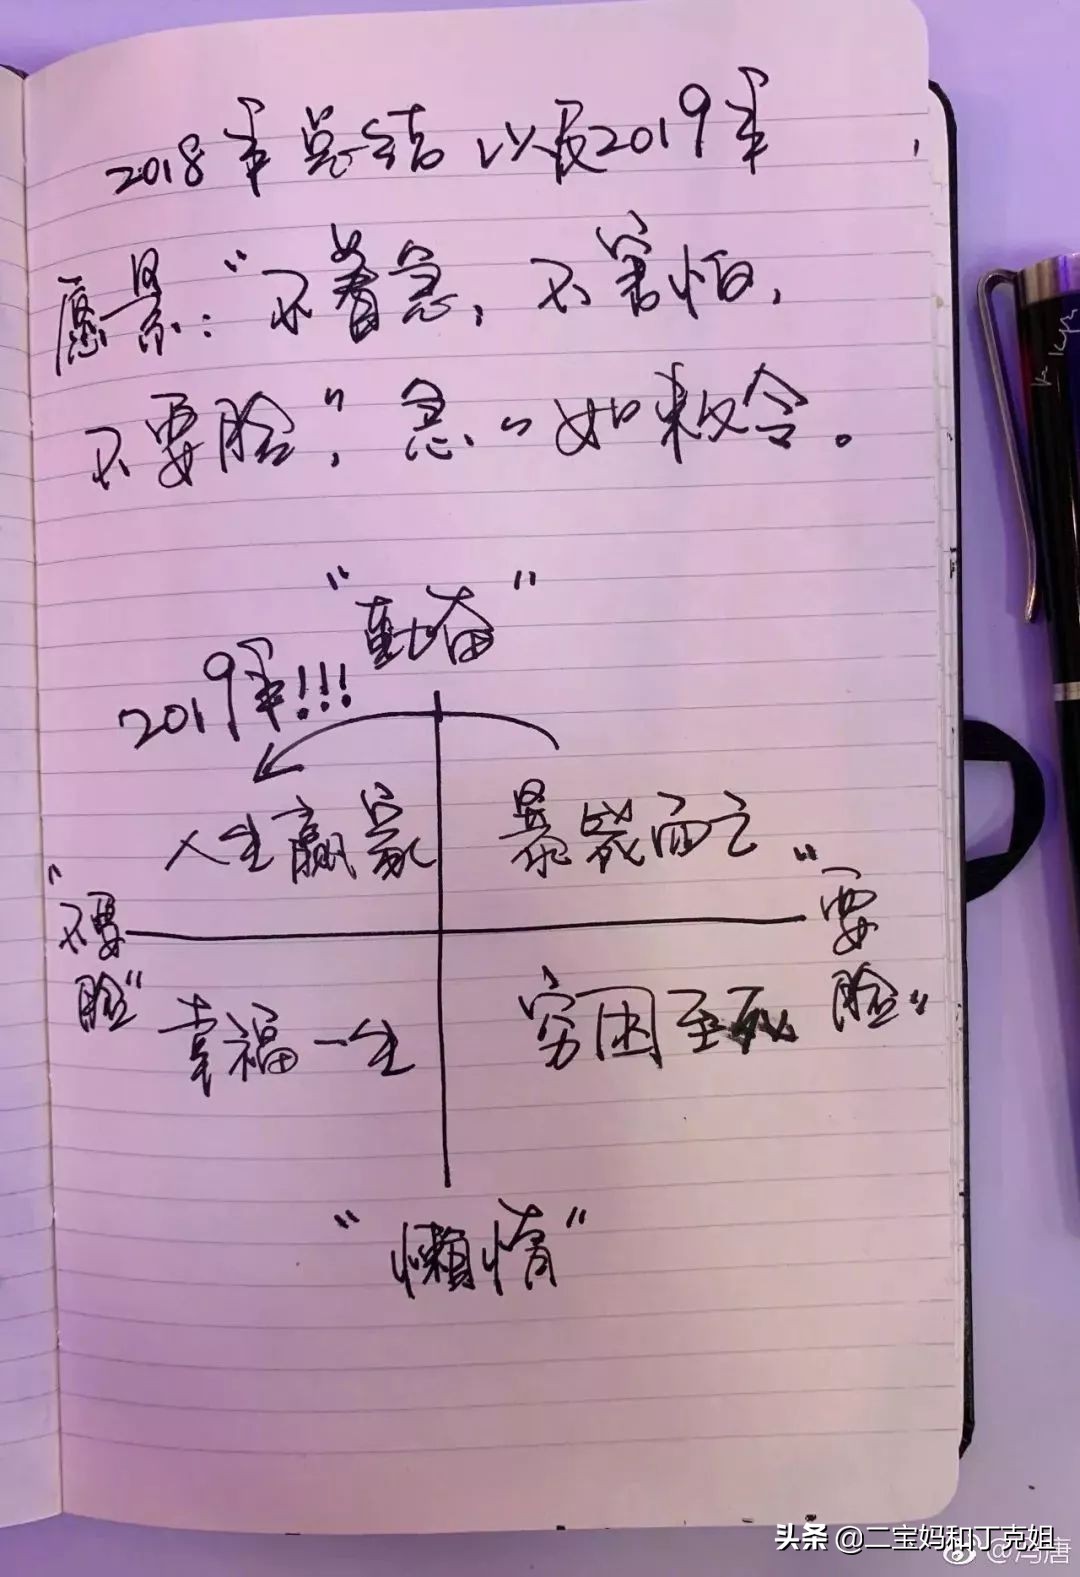 2018年总结以及2019年
愿景："不着急，不害怕，
不要脸"，急〃如敕令。
"勤奋"
2019年!!!
人生赢家
暴毙而亡
"不要
脸"
"要
脸"
幸福一生
穷困至死
"懒惰"
头条 @二宝妈和丁克姐
@冯唐